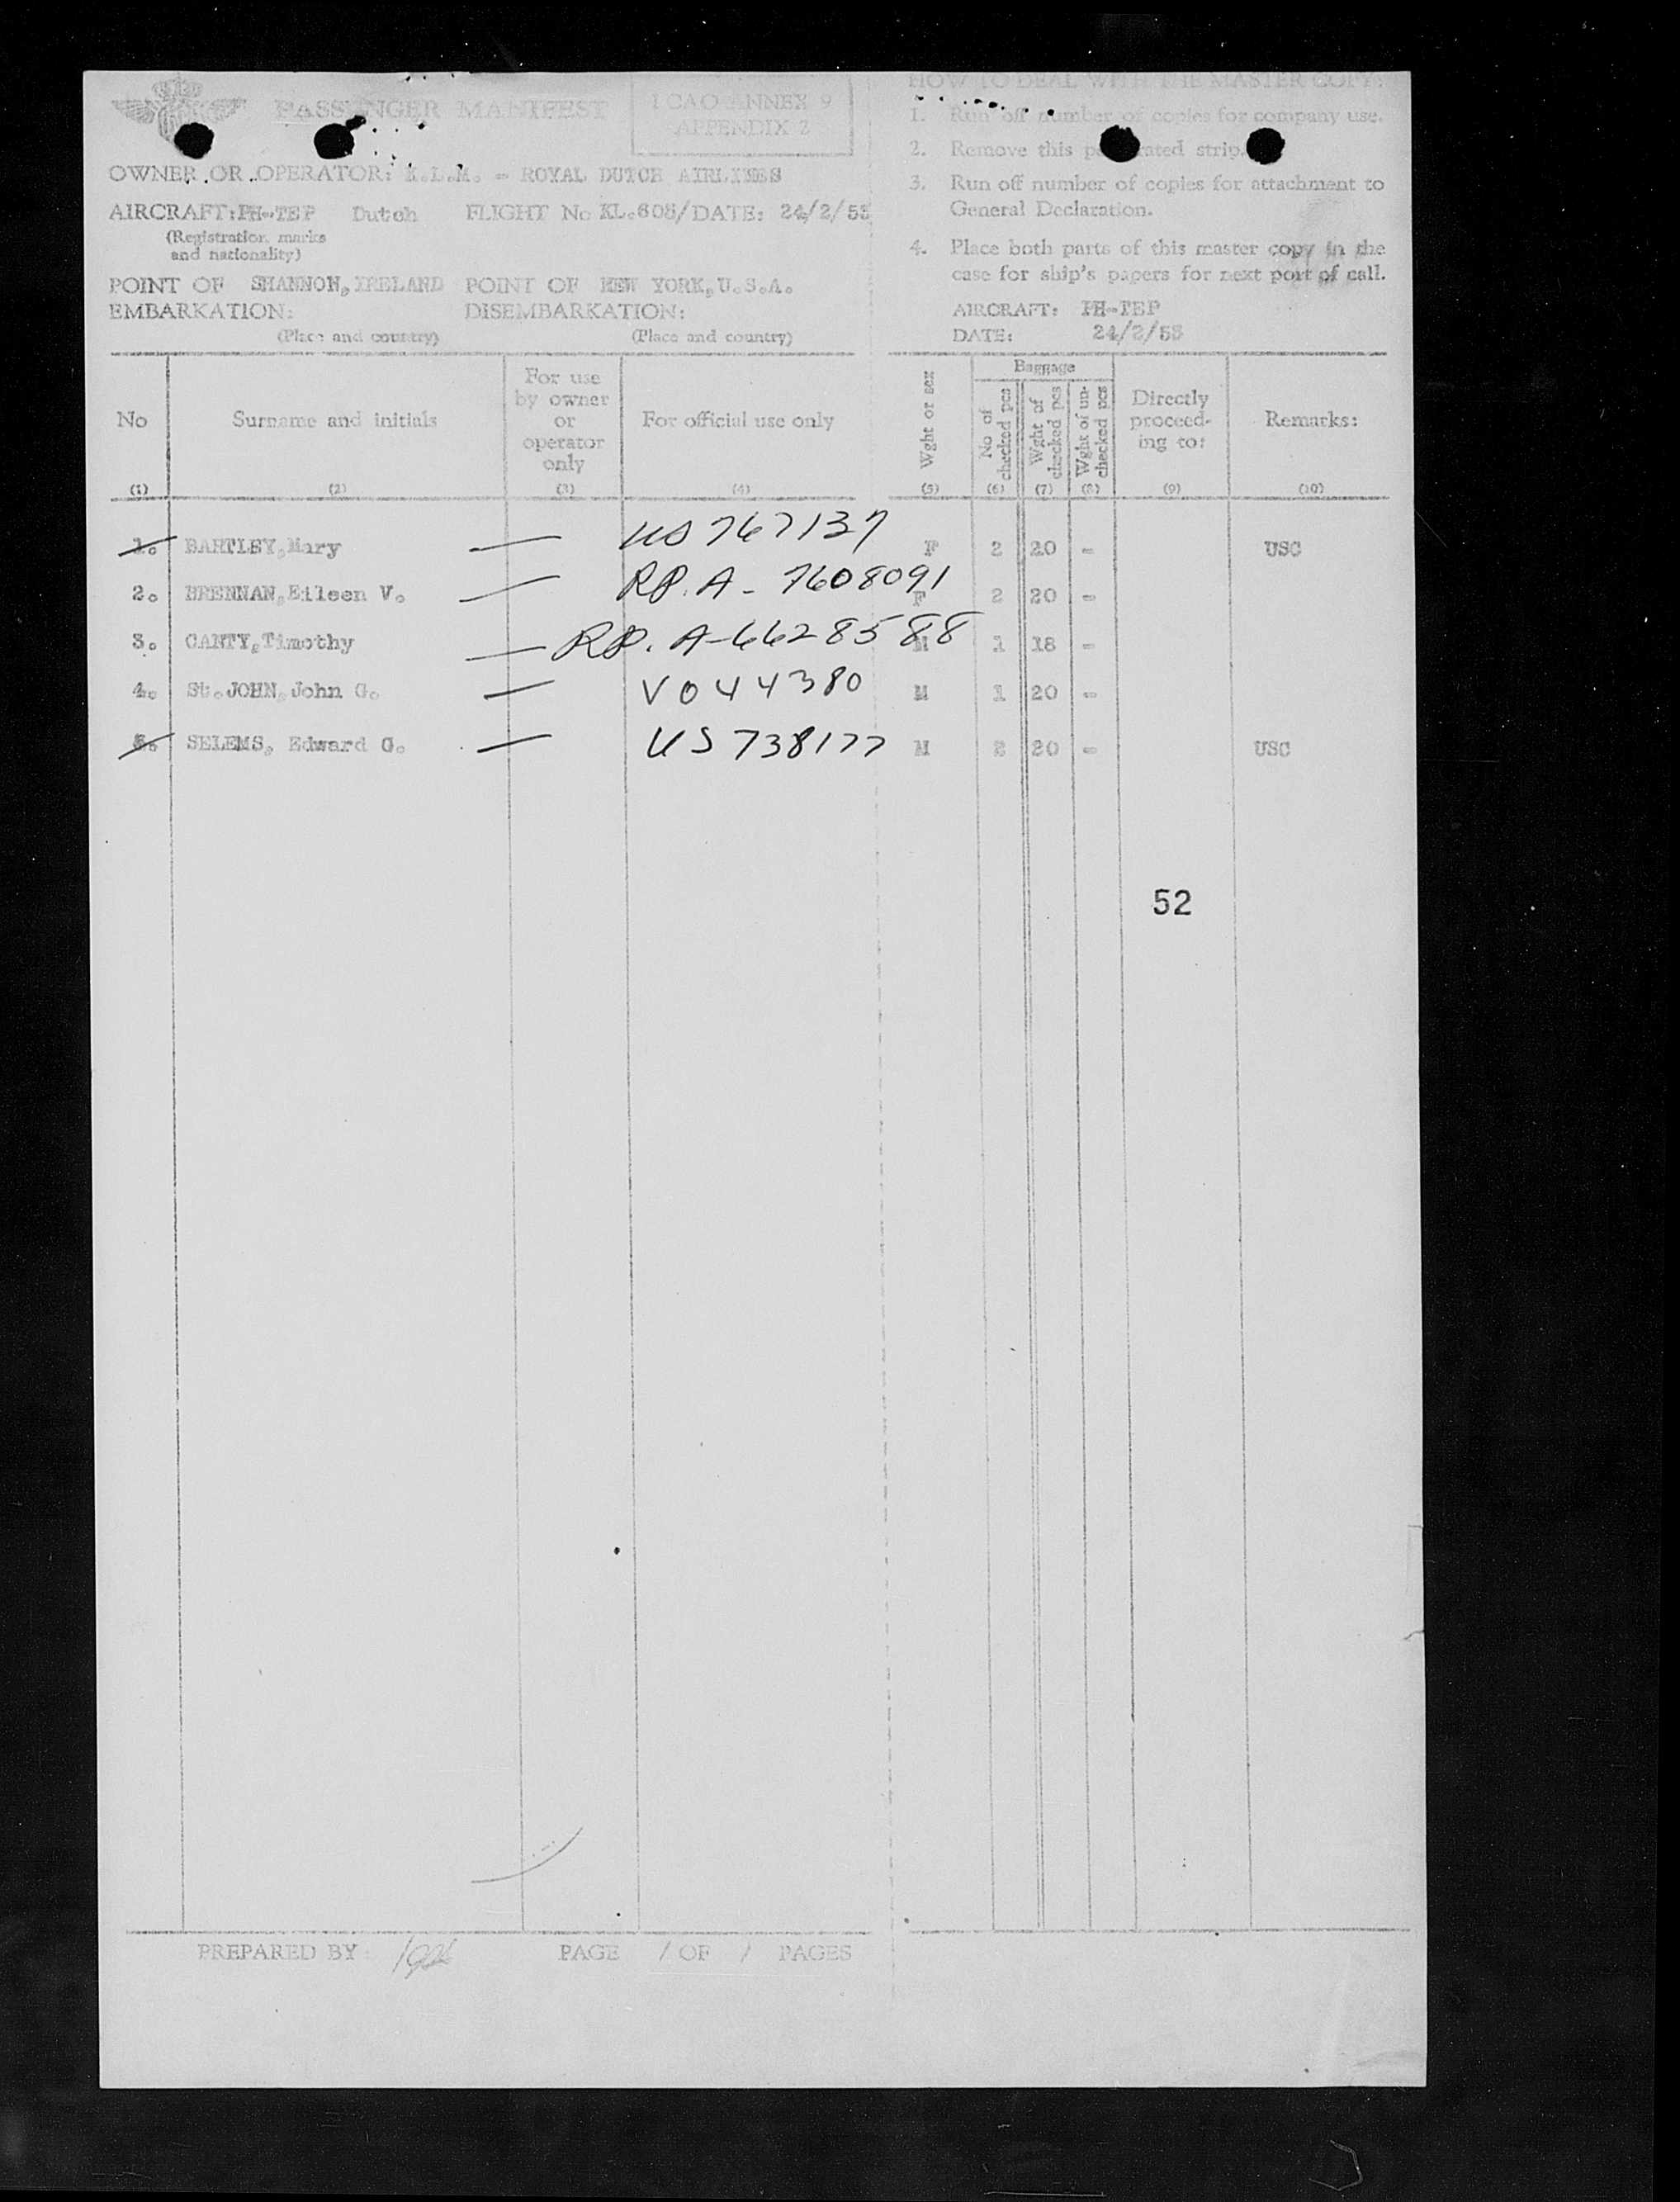 PASSENGER MANIFEST
I CAO ANNEX 9
APPENDIX 2
OWNER OR OPERATOR: K.L.M. - ROYAL DUTCH AIRLINES
AIRCRAFT: PH-TEP Dutch FLIGHT No KL.605/DATE: 24/2/53
(Registration marks
and nationality)
POINT OF SHANNON, IRELAND POINT OF NEW YORK, U.S.A.
EMBARKATION: DISEMBARKATION:
(Place and country) (Place and country)
HOW TO DEAL WITH THE MASTER COPY:
1. Run off number of copies for company use.
2. Remove this perforated strip.
3. Run off number of copies for attachment to
General Declaration.
4. Place both parts of this master copy in the
case for ship's papers for next port of call.
AIRCRAFT: PH-TEP
DATE: 24/2/53
No
(1)
Surname and initials
(2)
For use
by owner
or
operator
only
(3)
For official use only
(4)
Wght or sex
(5)
Baggage
No of
checked pcs
(6)
Wght of
checked pcs
(7)
Wght of un-
checked pcs
(8)
Directly
proceed-
ing to:
(9)
Remarks:
(10)
1. BARTLEY, Mary — US 767137 F 2 20 - USC
2. BRENNAN, Eileen V. — RP. A - 7608091 F 2 20 -
3. CANTY, Timothy — RP. A-6628588 M 1 18 -
4. St. JOHN, John G. — V 044380 M 1 20 -
5. SELEMS, Edward G. — US 738177 M 2 20 - USC
52
PREPARED BY: PAGE 1 OF 1 PAGES